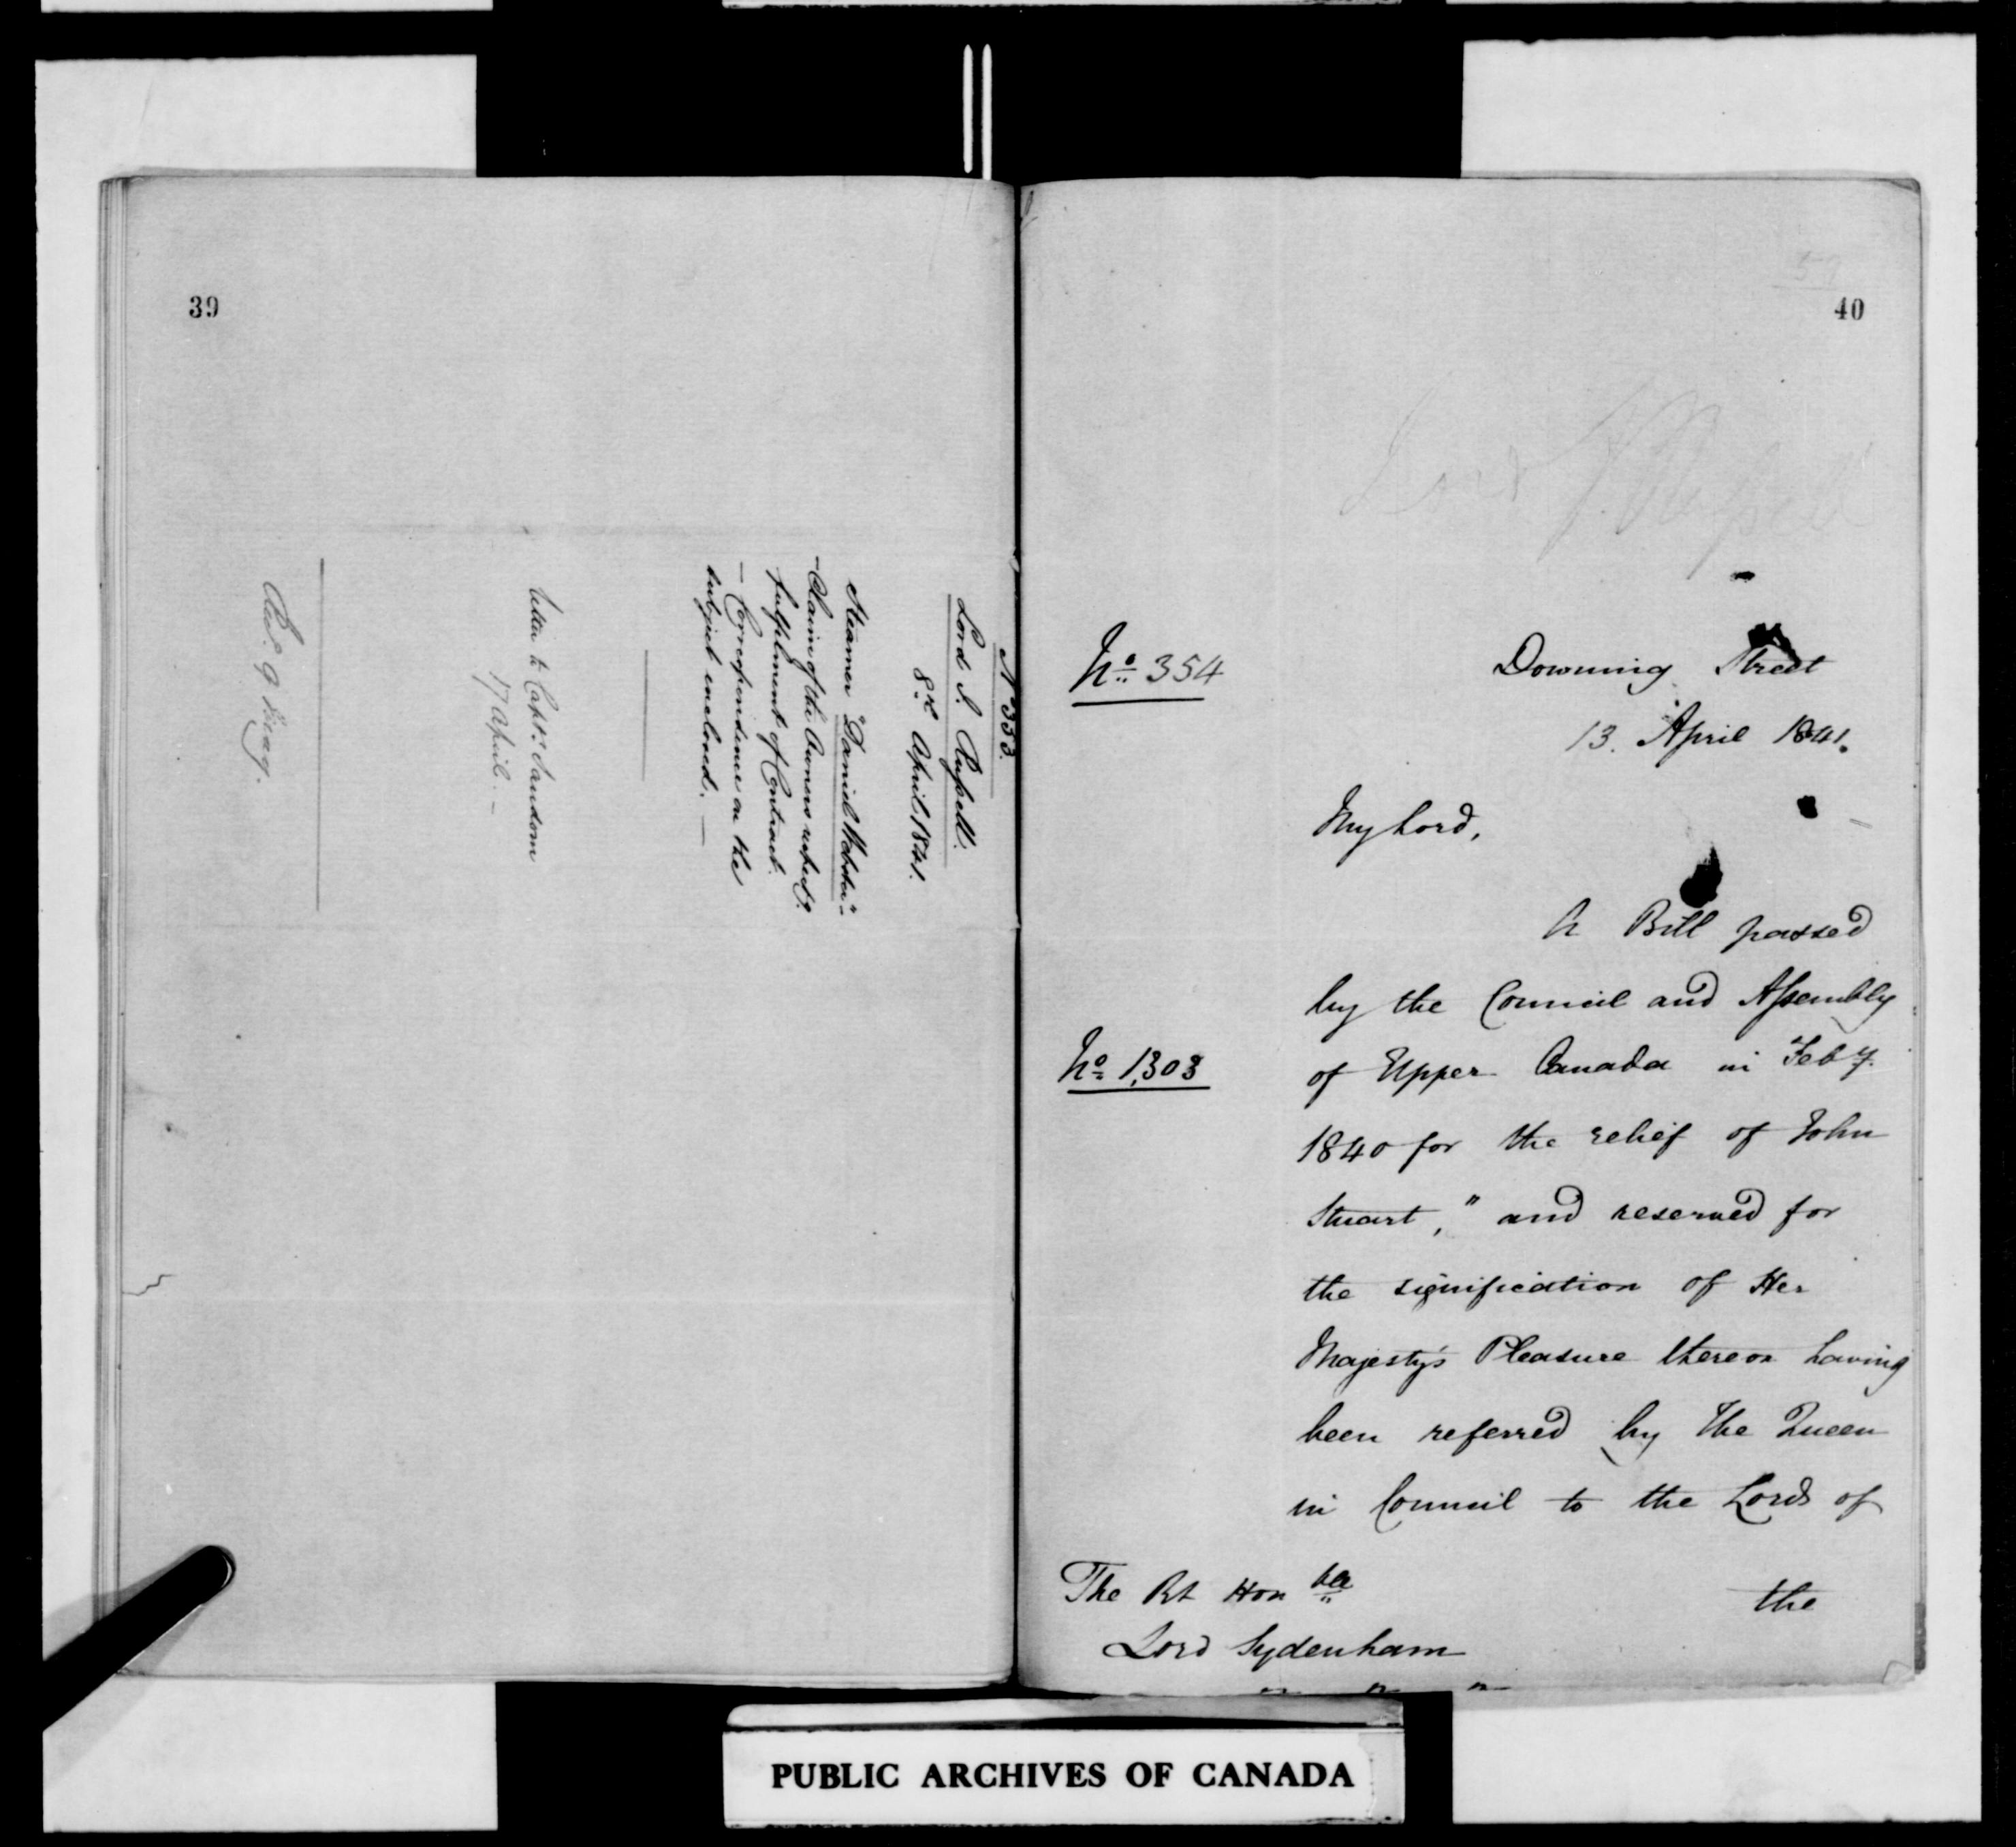 39
No 353.
Lord J. Russell.
8th April 1841.
Steamer "Daniel Webster"-
- Claim of the Owners respectg.
fulfilment of Contract.
- Correspondence on the
subject enclosed. -
Letter to Captn. Sandom
17 April. -
40
Lord J Russell
No 354
Downing Street
13. April 1841.
My Lord,
A Bill passed
by the Council and Assembly
No 1,303
of Upper Canada in Feby.
1840 for the relief of John
Stuart," and reserved for
the signification of Her
Majesty's Pleasure thereon having
been referred by the Queen
in Council to the Lords of
The Rt Honble
the
Lord Sydenham
" " "
PUBLIC ARCHIVES OF CANADA